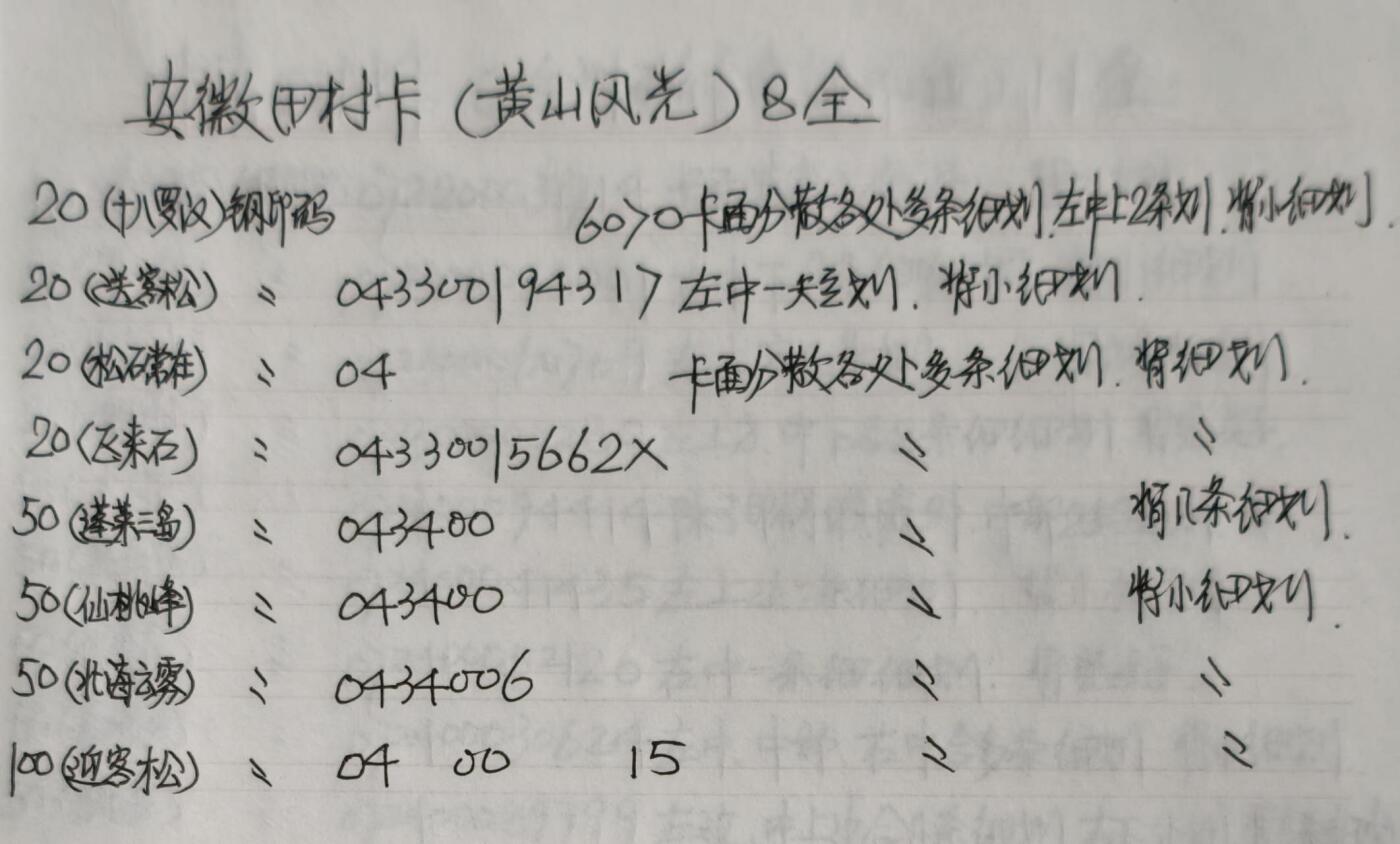 安徽田村卡(黄山风光)8全
20(十八罗汉)钢印码 6070卡面分散各处多条细划.左中上2条划.背小细划.
20(送客松) 〃 043300194317左中一短划.背小细划.
20(松石常在) 〃 04 卡面分散各处多条细划.背细划.
20(飞来石) 〃 04330015662X 〃 〃
50(蓬莱三岛) 〃 043400 〃 背几条细划.
50(仙桃峰) 〃 043400 〃 背小细划.
50(北海云雾) 〃 0434006 〃 〃
100(迎客松) 〃 04 00 15 〃 〃